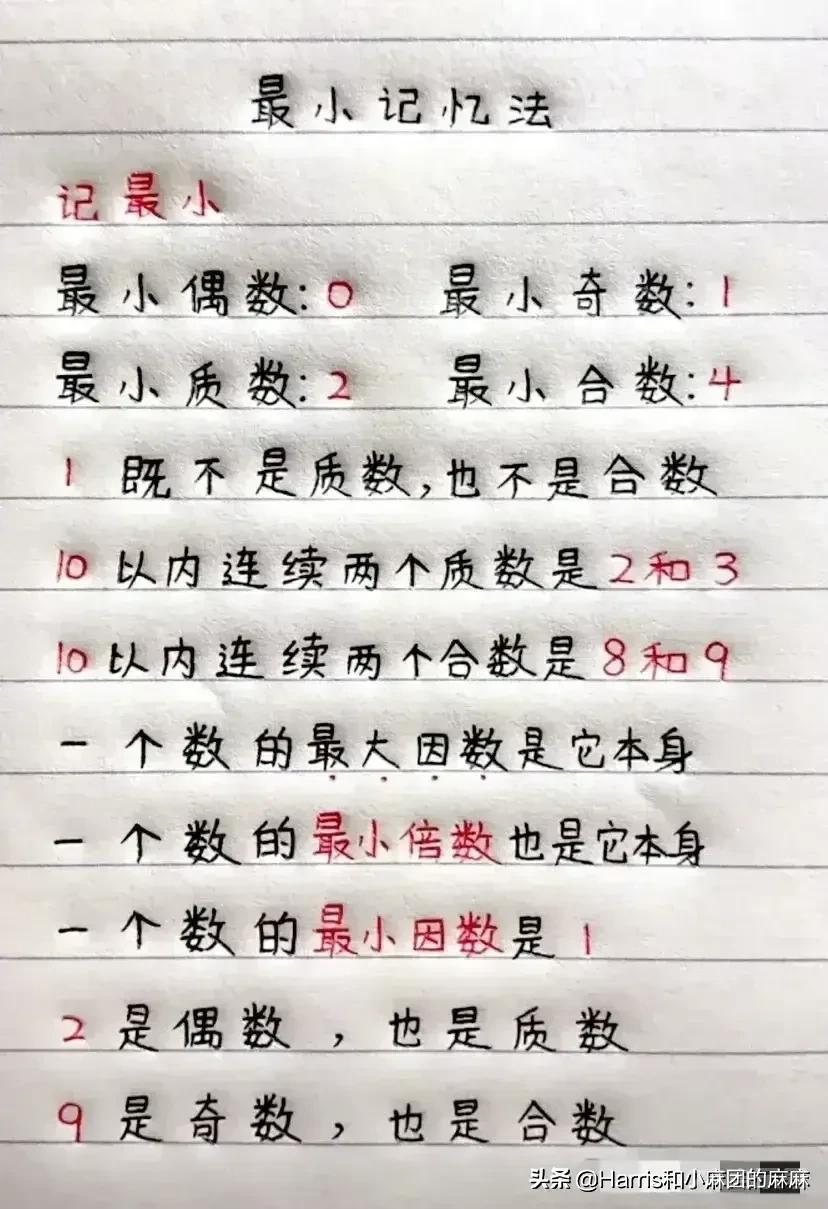 最小记忆法
记最小
最小偶数:0 最小奇数:1
最小质数:2 最小合数:4
1 既不是质数,也不是合数
10以内连续两个质数是2和3
10以内连续两个合数是8和9
一个数的最大因数是它本身
一个数的最小倍数也是它本身
一个数的最小因数是 1
2 是偶数,也是质数
9 是奇数,也是合数
头条 @Harris和小麻团的麻麻